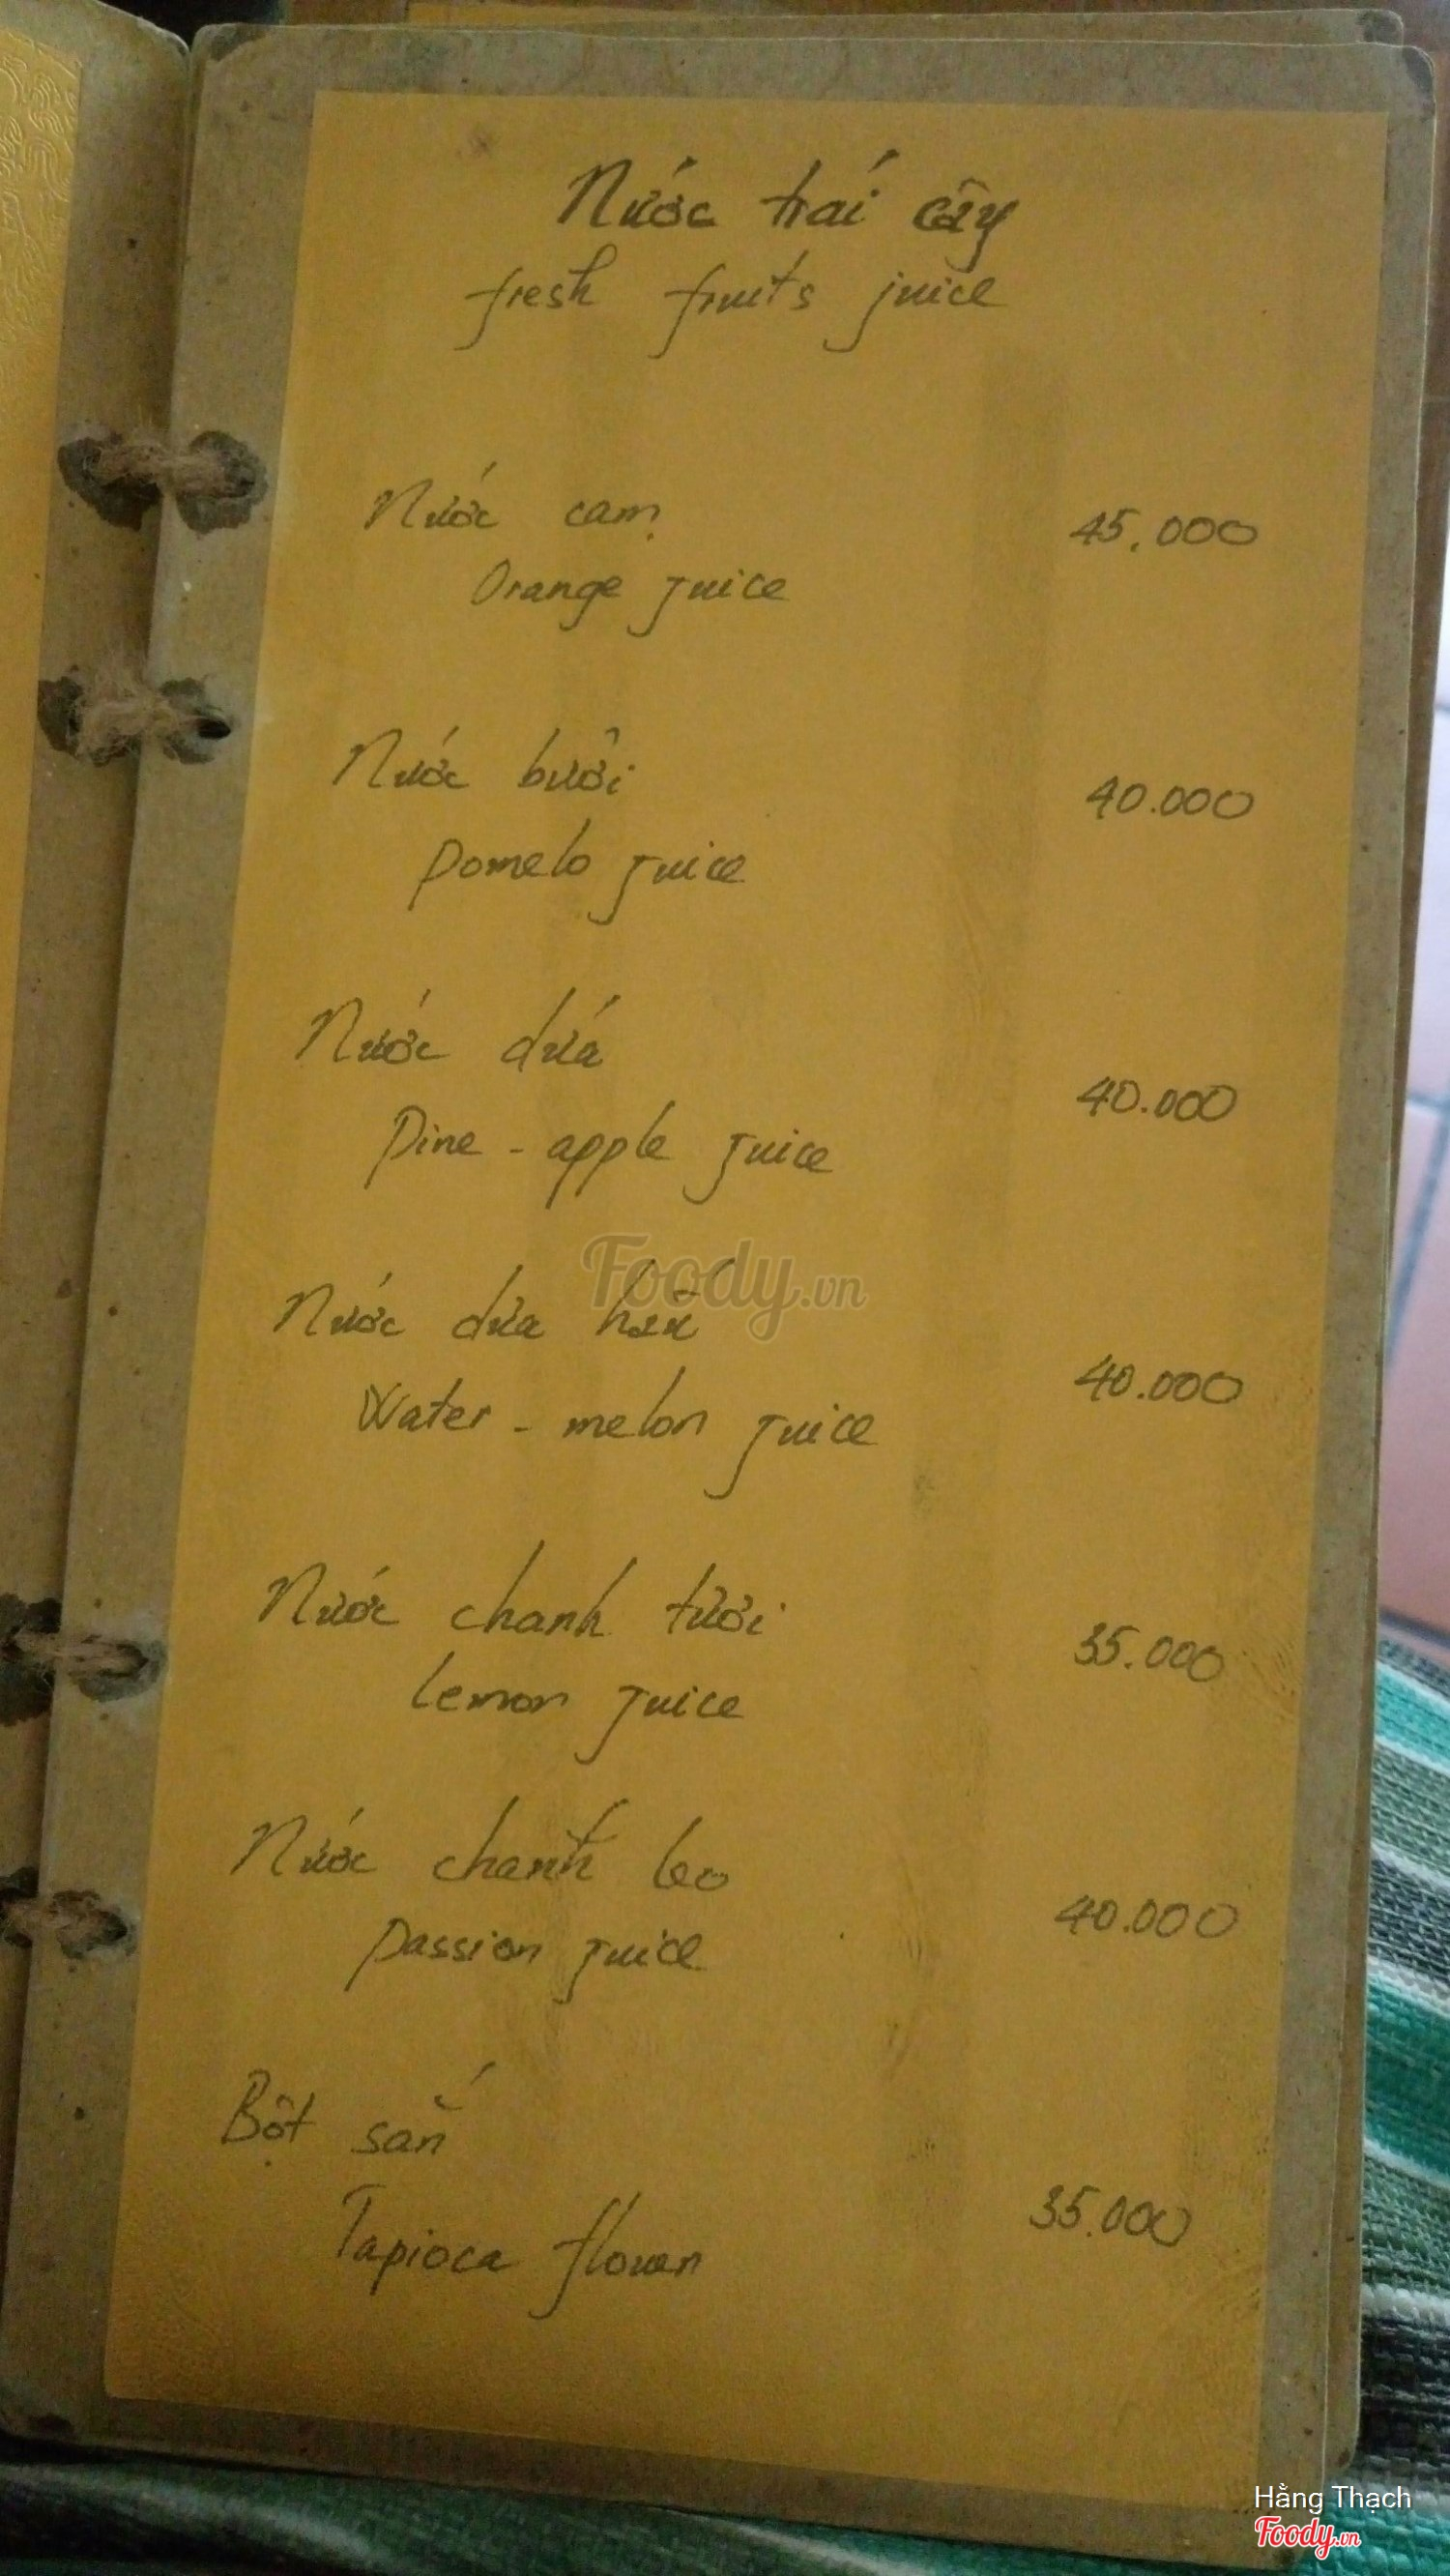 Nước trái cây
fresh fruits juice
Nước cam 45.000
Orange juice
Nước bưởi 40.000
Pomelo juice
Nước dứa 40.000
Pine - apple juice
Nước dưa hấu 40.000
Water - melon juice
Nước chanh tươi 35.000
Lemon juice
Nước chanh leo 40.000
Passion juice
Bột sắn 35.000
Tapioca
Foody.vn
Hằng Thạch
Foody.vn